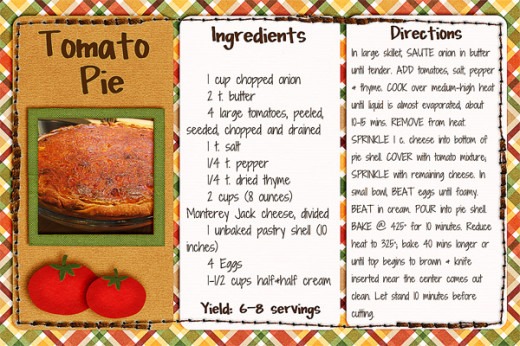 Tomato
Pie
Ingredients
1 cup chopped onion
2 t. butter
4 large tomatoes, peeled,
seeded, chopped and drained
1 t. salt
1/4 t. pepper
1/4 t. dried thyme
2 cups (8 ounces)
Monterey Jack cheese, divided
1 unbaked pastry shell (10
inches)
4 Eggs
1-1/2 cups half&half cream
Yield: 6-8 servings
Directions
In large skillet, SAUTE onion in butter
until tender. ADD tomatoes, salt, pepper
& thyme. COOK over medium-high heat
until liquid is almost evaporated, about
10-15 mins. REMOVE from heat.
SPRINKLE 1 c. cheese into bottom of
pie shell. COVER with tomato mixture;
SPRINKLE with remaining cheese. In
small bowl, BEAT eggs until foamy.
BEAT in cream. POUR into pie shell.
BAKE @ 425° for 10 minutes. Reduce
heat to 325°; bake 40 mins longer or
until top begins to brown & knife
inserted near the center comes out
clean. Let stand 10 minutes before
cutting.